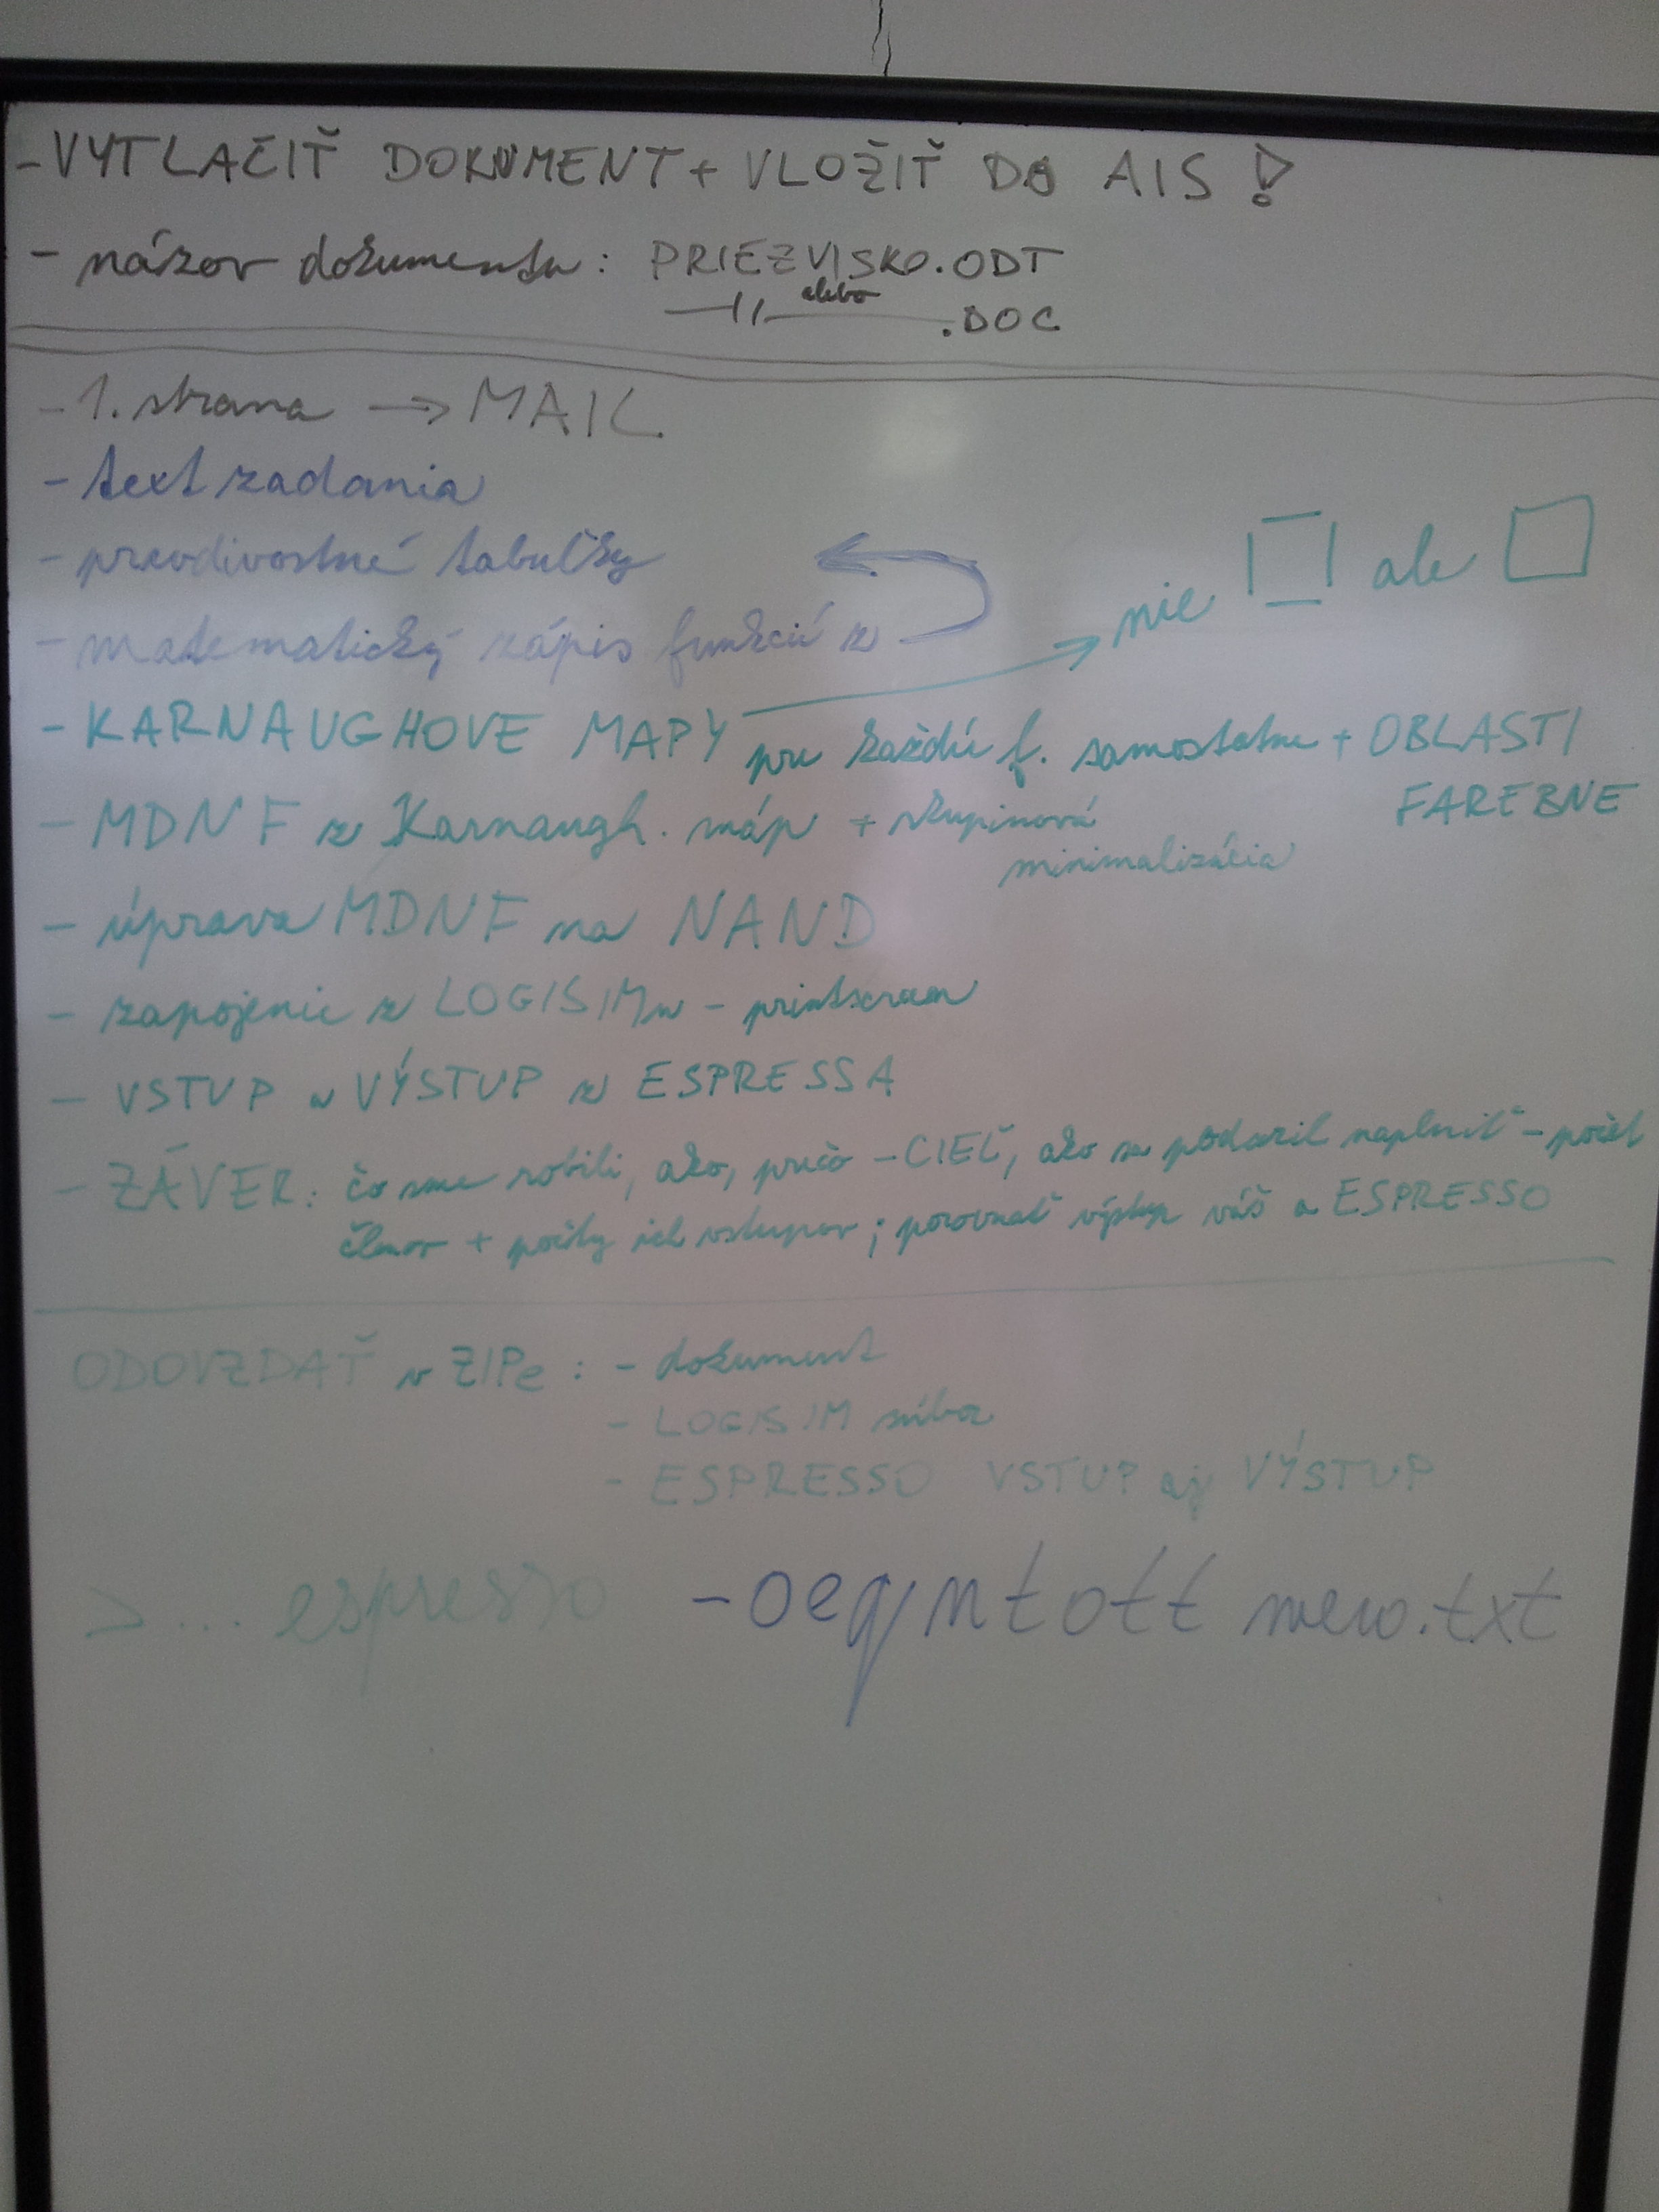 - VYTLAČIŤ DOKUMENT + VLOŽIŤ DO AIS !
- názov dokumentu: PRIEZVISKO.ODT
alebo
—//— .DOC
- 1. strana → MAIL
- text zadania
- pravdivostné tabuľky
- matematický zápis funkcií z
nie ale
- KARNAUGHOVE MAPY pre každú f. samostatne + OBLASTI
FAREBNE
- MDNF z Karnaugh. máp + skupinová
minimalizácia
- úprava MDNF na NAND
- zapojenie z LOGISIMu - printscreen
- VSTUP a VÝSTUP z ESPRESSA
- ZÁVER: čo sme robili, ako, prečo - CIEĽ, ako sa podaril naplniť - počet
členov + počty ich vstupov; porovnať výstup váš a ESPRESSO
ODOVZDAŤ v ZIPe: - dokument
- LOGISIM súbor
- ESPRESSO VSTUP aj VÝSTUP
> ... espresso -oeqntott meno.txt